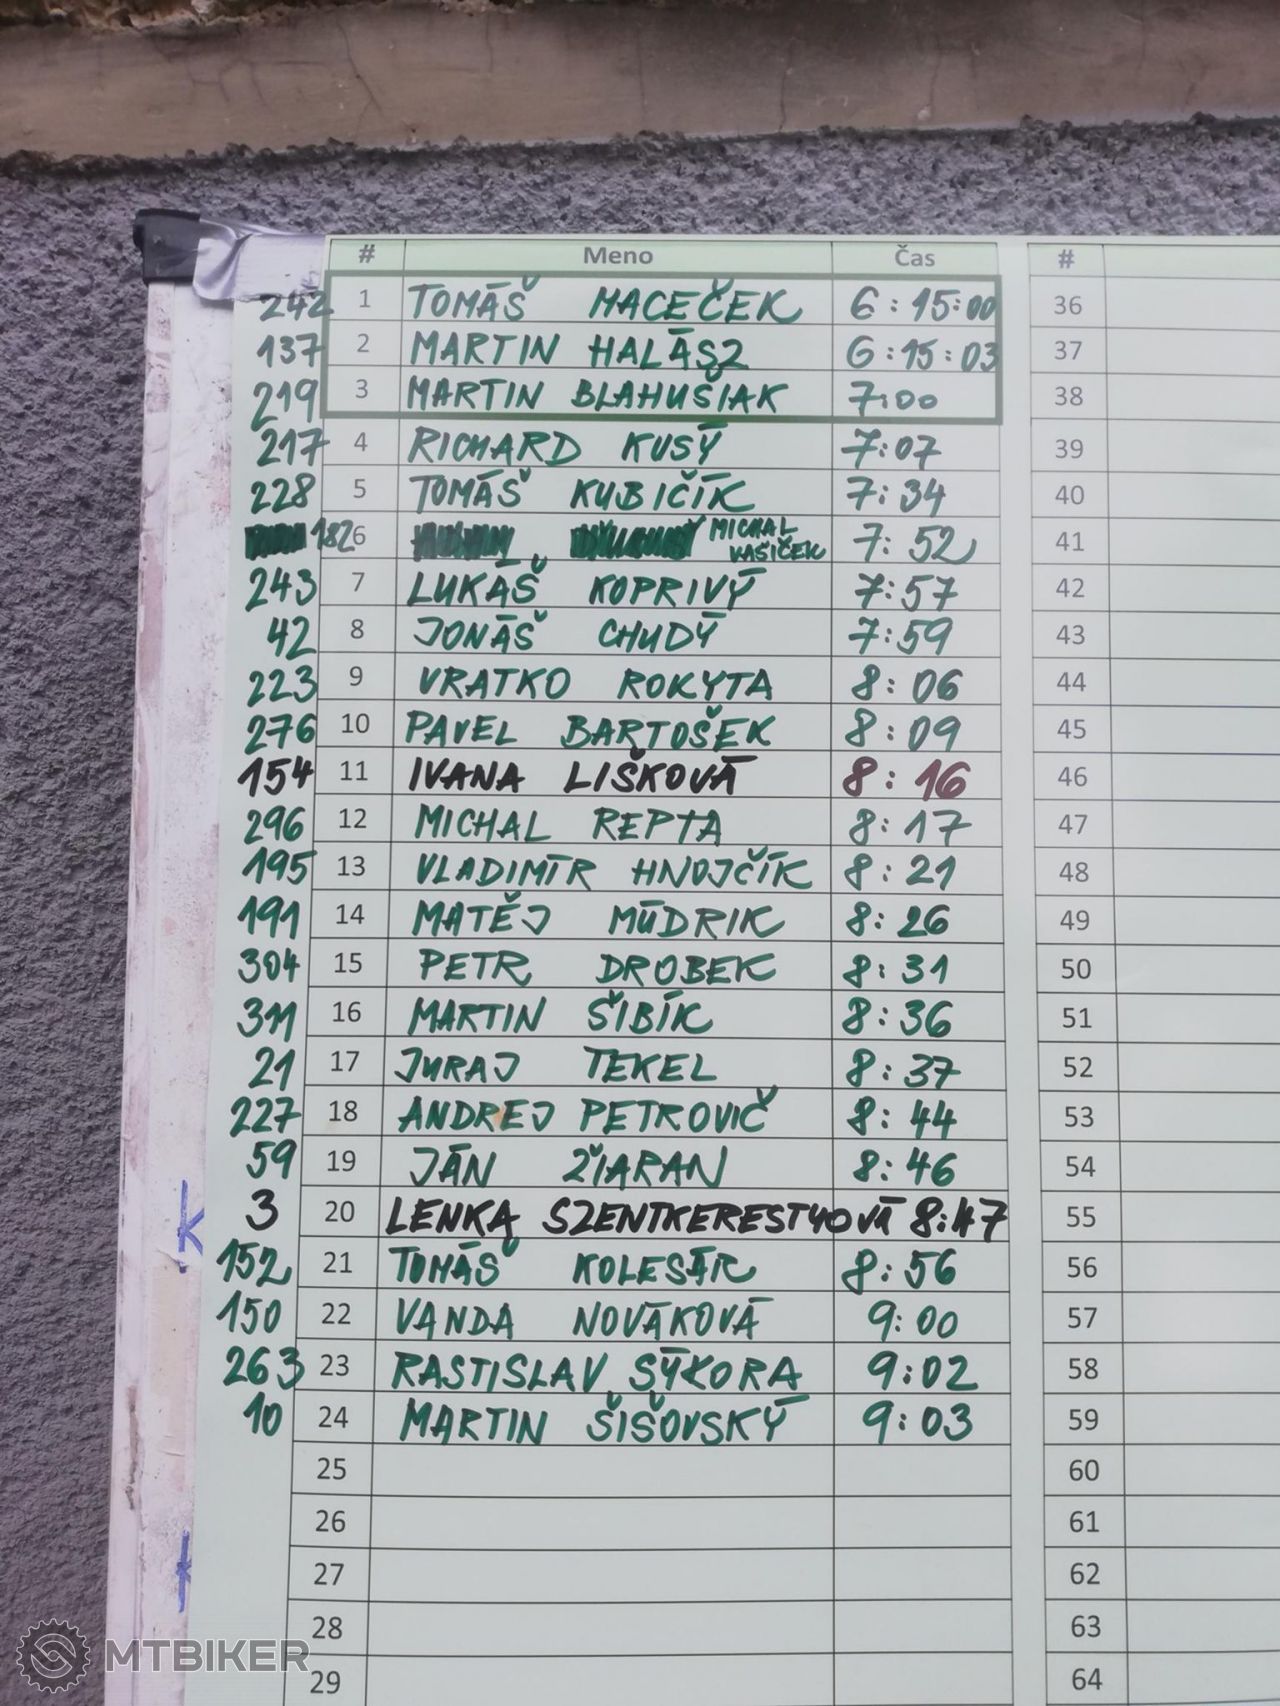 # Meno Čas #
242 1 TOMÁŠ MACEČEK 6:15:00 36
137 2 MARTIN HALÁSZ 6:15:03 37
219 3 MARTIN BLAHUŠIAK 7:00 38
217 4 RICHARD KUSÝ 7:07 39
228 5 TOMÁŠ KUBIČÍK 7:34 40
182 6 MICHAL KAŠIČEK 7:52 41
243 7 LUKÁŠ KOPRIVÝ 7:57 42
42 8 JONÁŠ CHUDÝ 7:59 43
223 9 VRATKO ROKYTA 8:06 44
276 10 PAVEL BARTOŠEK 8:09 45
154 11 IVANA LIŠKOVÁ 8:16 46
296 12 MICHAL REPTA 8:17 47
195 13 VLADIMÍR HNOJČÍK 8:21 48
191 14 MATĚJ MÚDRIK 8:26 49
304 15 PETR DROBEK 8:31 50
311 16 MARTIN ŠIBÍK 8:36 51
21 17 JURAJ TEKEL 8:37 52
227 18 ANDREJ PETROVIČ 8:44 53
59 19 JÁN ŽIARAN 8:46 54
3 20 LENKA SZENTKERESTYOVÁ 8:47 55
152 21 TOMÁŠ KOLESÁR 8:56 56
150 22 VANDA NOVÁKOVÁ 9:00 57
263 23 RASTISLAV SÝKORA 9:02 58
10 24 MARTIN ŠIŠOVSKÝ 9:03 59
25 60
26 61
27 62
28 63
29 64
MTBIKER